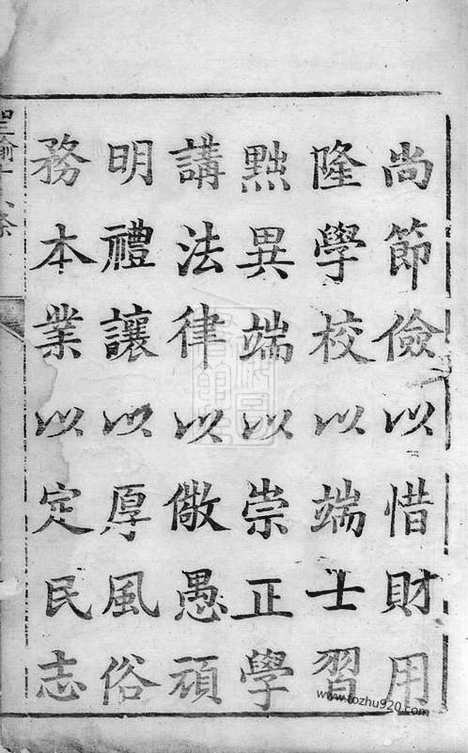 尚節儉以惜財用
隆學校以端士習
黜異端以崇正學
講法律以儆愚頑
明禮讓以厚風俗
務本業以定民志
www.tozhu920.com